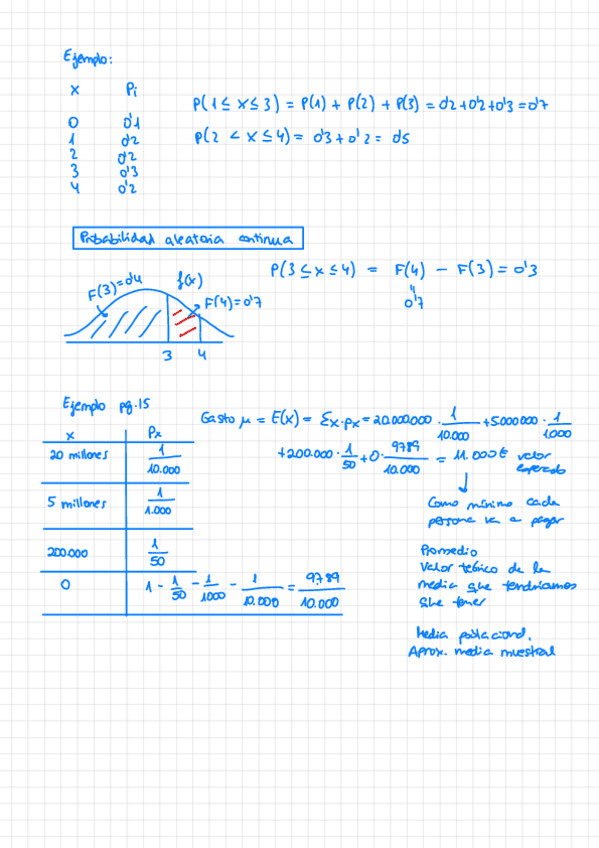 Ejemplo:
x Pi
0 0'1
1 0'2
2 0'2
3 0'3
4 0'2
P(1 ≤ x ≤ 3) = P(1) + P(2) + P(3) = 0'2+0'2+0'3=0'7
P(2 < x ≤ 4) = 0'3+0'2 = 0'5
Probabilidad aleatoria continua
F(3)=0'4
f(x)
F(4)=0'7
3 4
P(3 ≤ x ≤ 4) = F(4) - F(3) = 0'3
0'7
Ejemplo pg.15
x Px
20 millones 1/10.000
5 millones 1/1.000
200.000 1/50
0 1 - 1/50 - 1/1000 - 1/10.000 = 9789/10.000
Gasto μ = E(x) = Σx·px = 20.000.000 · 1/10.000 + 5.000.000 · 1/1.000
+ 200.000 · 1/50 + 0 · 9789/10.000 = 11.000€ valor
esperado
Como mínimo cada
persona va a pagar
Promedio
Valor teórico de la
media que tendríamos
que tener
Media poblacional.
Aprox. media muestral